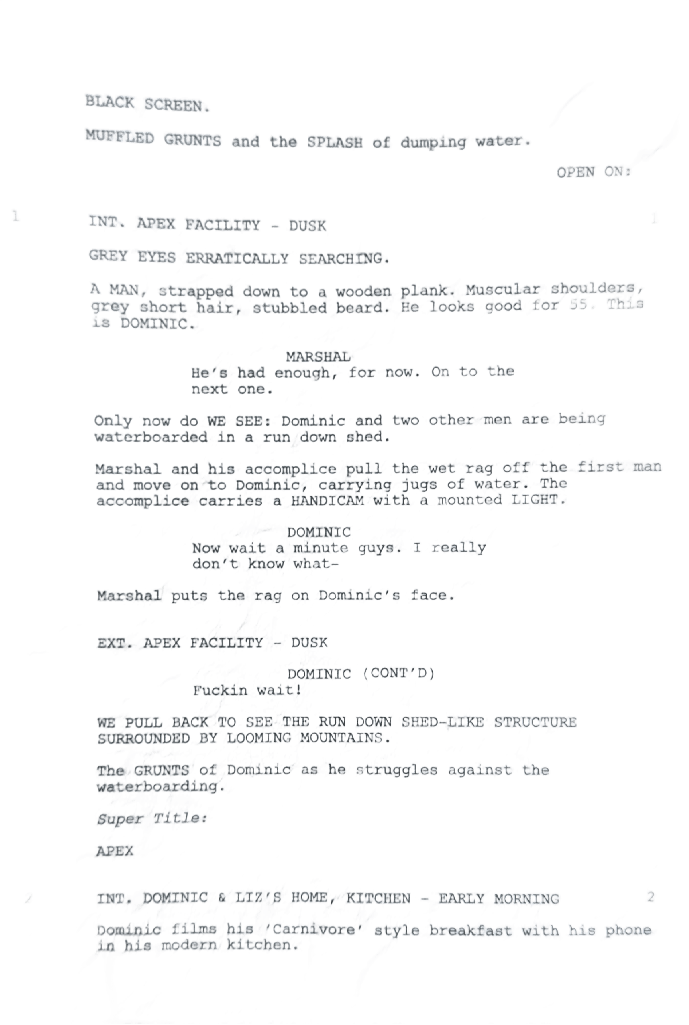 BLACK SCREEN.
MUFFLED GRUNTS and the SPLASH of dumping water.
OPEN ON:
1 INT. APEX FACILITY - DUSK
GREY EYES ERRATICALLY SEARCHING.
A MAN, strapped down to a wooden plank. Muscular shoulders,
grey short hair, stubbled beard. He looks good for 55. This
is DOMINIC.
MARSHAL
He's had enough, for now. On to the
next one.
Only now do WE SEE: Dominic and two other men are being
waterboarded in a run down shed.
Marshal and his accomplice pull the wet rag off the first man
and move on to Dominic, carrying jugs of water. The
accomplice carries a HANDICAM with a mounted LIGHT.
DOMINIC
Now wait a minute guys. I really
don't know what-
Marshal puts the rag on Dominic's face.
EXT. APEX FACILITY - DUSK
DOMINIC (CONT'D)
Fuckin wait!
WE PULL BACK TO SEE THE RUN DOWN SHED-LIKE STRUCTURE
SURROUNDED BY LOOMING MOUNTAINS.
The GRUNTS of Dominic as he struggles against the
waterboarding.
Super Title:
APEX
INT. DOMINIC & LIZ'S HOME, KITCHEN - EARLY MORNING 2
Dominic films his 'Carnivore' style breakfast with his phone
in his modern kitchen.